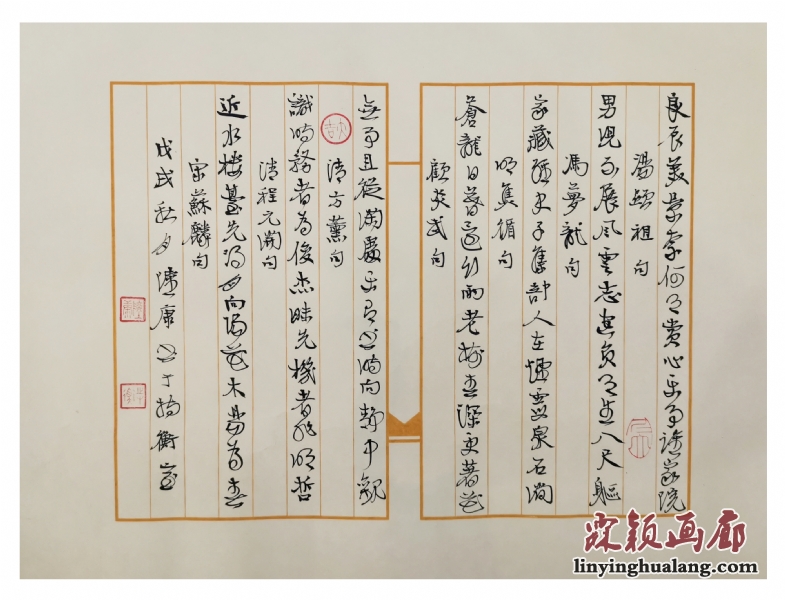 良辰美景奈何天賞心樂事誰家院
湯顯祖句
男兒不展風雲志空負天生八尺軀
馮夢龍句
家藏經史子集部人在煙霞泉石間
明焦循句
蒼龍日暮還行雨老樹春深更著花
顧炎武句
無事且從閑處樂有書時向靜中觀
清方薰句
識時務者為俊杰昧先機者非明哲
清程元開句
近水樓臺先得月向陽花木易為春
宋蘇麟句
戊戌秋月陳康書于抱衡
霖颖画廊
linyinghualang.com